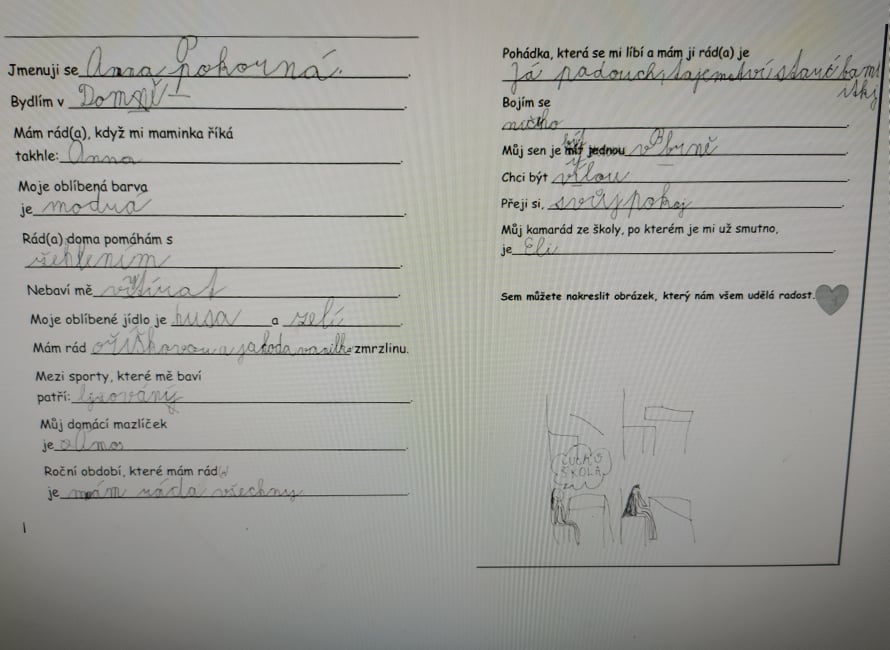 Jmenuji se Anna Pokorná.
Bydlím v Domně
Mám rád(a), když mi maminka říká
takhle: Anna
Moje oblíbená barva
je modra
Rád(a) doma pomáhám s
žehlením
Nebaví mě vitírat
Moje oblíbené jídlo je husa a zelí
Mám rád oříškovou a jahoda vanilka zmrzlinu.
Mezi sporty, které mě baví
patří: lyžování
Můj domácí mazlíček
je
Roční období, které mám rád
je mám ráda všechny
Pohádka, která se mi líbí a mám ji rád(a) je
Já padouch, tajemství staré bam
itky
Bojím se
ničeho
Můj sen je být jednou v Brně
Chci být vílou
Přeji si, svůj pokoj
Můj kamarád ze školy, po kterém je mi už smutno,
je Eli
Sem můžete nakreslit obrázek, který nám všem udělá radost.
ŠKOLA